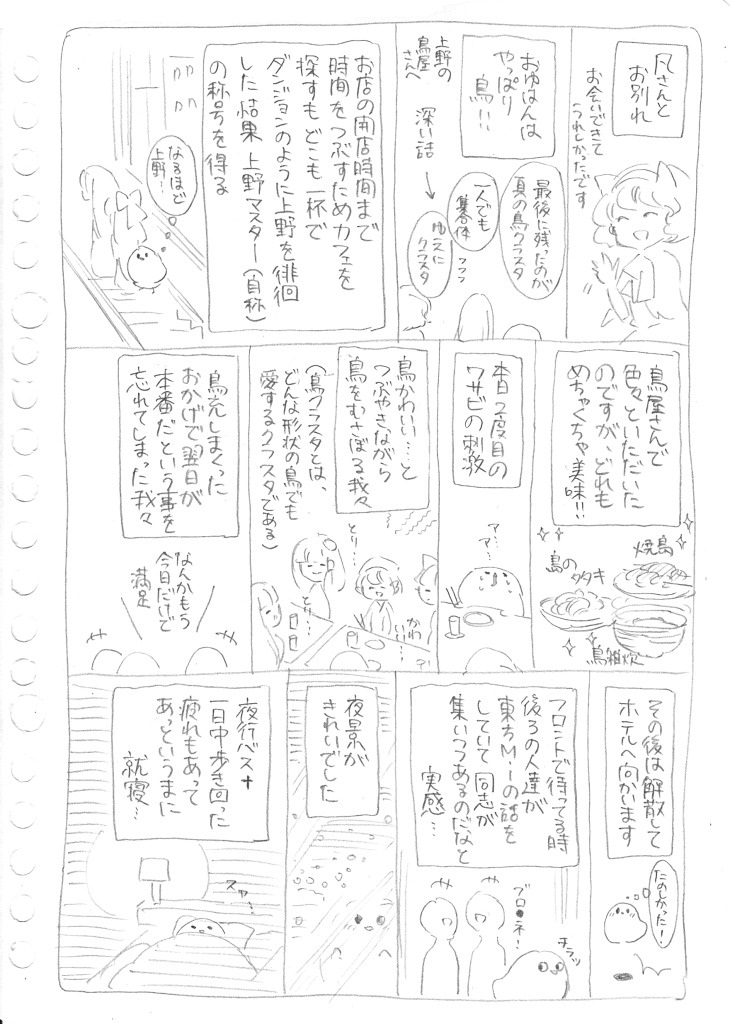 凡さんと
お別れ
お会いできて
うれしかったです
おゆはんは
やっぱり
鳥!!
最後に残ったのが
真の鳥クラスタ
一人でも
集合体
フフフ
ゆえに
クラスタ
上野の
鳥屋
さんへ
深い話
お店の開店時間まで
時間をつぶすためカフェを
探すもどこも一杯で
ダンジョンのように上野を徘徊
した結果上野マスター(自称)
の称号を得る
なるほど
上野…
鳥屋さんで
色々といただいた
のですが、どれも
めちゃくちゃ美味!!
焼鳥
鳥の
タタキ
鳥雑炊
本日2度目の
ワサビの刺激
ア…
ア…
鳥かわいい…と
つぶやきながら
鳥をむさぼる我々
(鳥クラスタとは、
どんな形状の鳥でも
愛するクラスタである)
とり…
とり…
かわ
いい…
鳥充しまくった
おかげで翌日が
本番だという事を
忘れてしまった我々
なんかもう
今日だけで
満足
その後は解散して
ホテルへ向かいます
たのしかった!
フロントで待ってる時
後ろの人達が
東方M-1の話を
していて同志が
集いつつあるのだなと
実感…
ブロ●ネ!
チラッ
夜景が
きれいでした
夜行バス+
一日中歩き回った
疲れもあって
あっというまに
就寝…
スヤ…